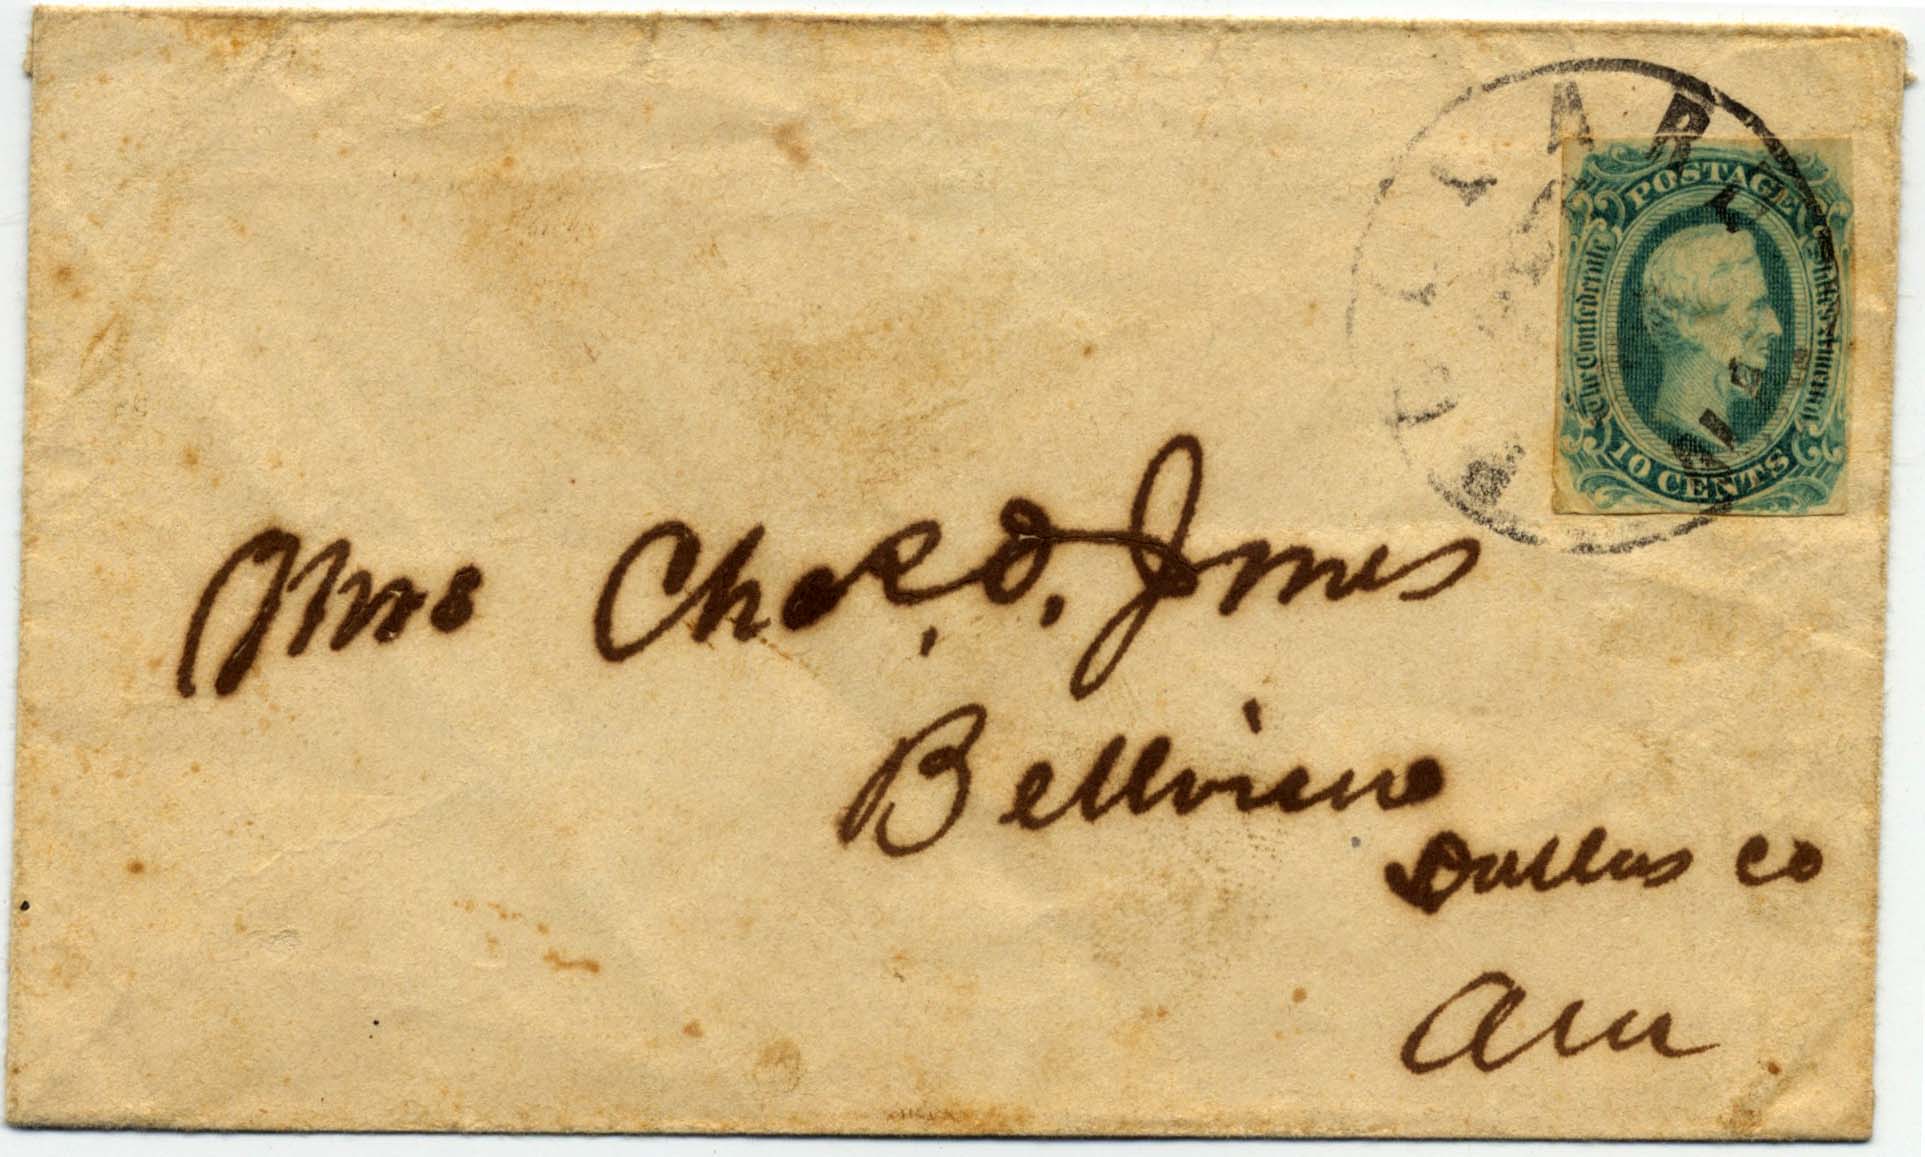 POSTAGE
The Confederate States of America
10 CENTS
Mrs Chas. D. Jones
Bellview
Dallas Co
Ala